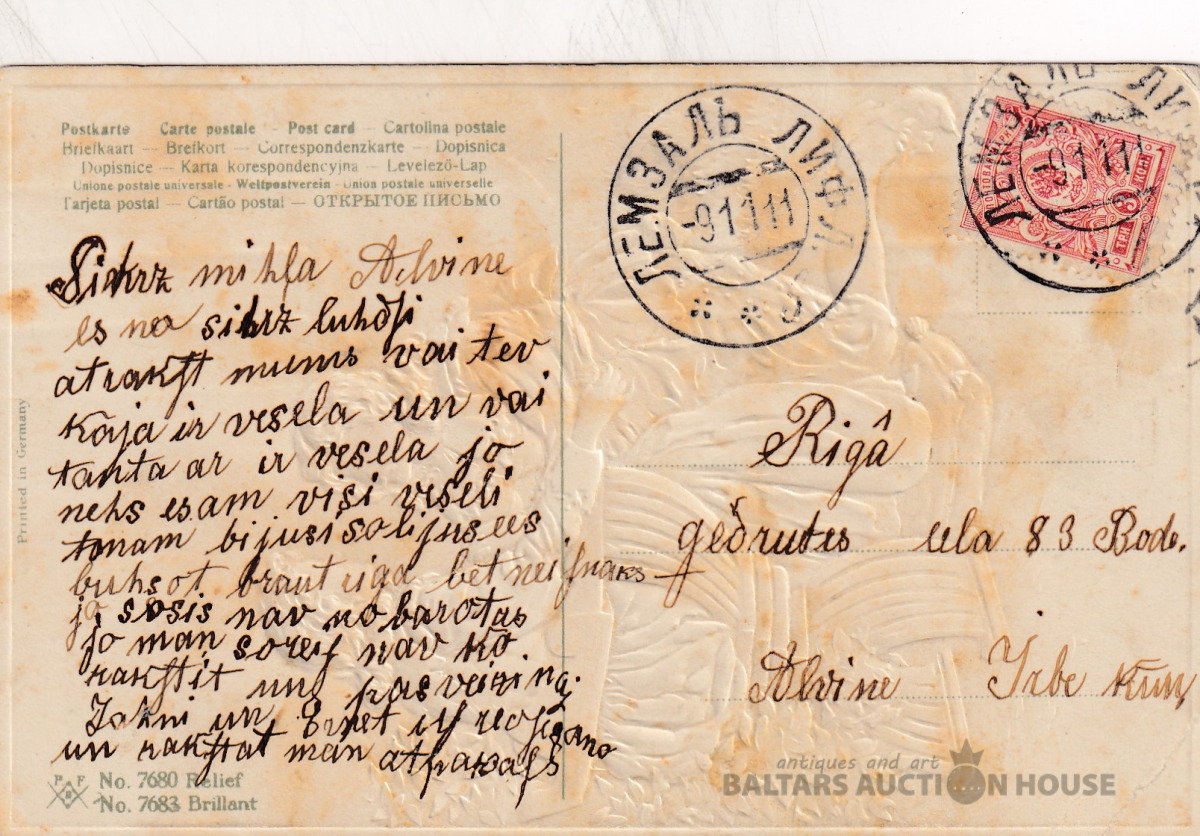 Postkarte Carte postale – Post card – Cartolina postale
Briefkaart – Brefkort – Correspondenzkarte – Dopisnica
Dopisnice – Karta korespondencyjna – Levelező-Lap
Unione postale universale - Weltpostverein - Union postale universelle
Tarjeta postal – Cartão postal – ОТКРЫТОЕ ПИСЬМО
mihļa Alvine
es no sirz luhdsi
atrakst mums vai tev
kaja ir vesela un vai
tanta ar ir vesela jo
mehs esam visi veseli
tonam bijusi solijusees
buhsot braut riga bet
jo sosis nav nobarotas
jo man soreis nav ko
rakstit un
Jahni un Ernet
un rakstat man atpakaļ
Printed in Germany
P F
No. 7680 Relief
No. 7683 Brillant
ЛЕМЗАЛЬ ЛИФЛ.
-9 1 11
ЛЕМЗАЛЬ ЛИ
-9 1 11
3
ТРИ КОП.
Rigâ
gedrutes iela 83 Bode.
Alvine Irbe kun
antiques and art
BALTARS AUCTION HOUSE